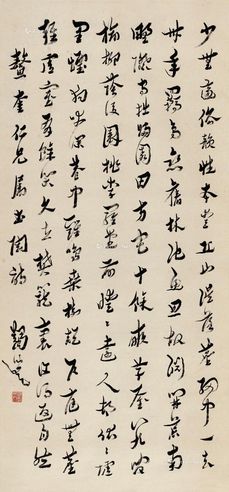 少無適俗韻性本愛丘山誤落塵網中一去
卅年羈鳥戀舊林池魚思故淵開荒南
野際守拙歸園田方宅十餘畝草屋八九間
榆柳蔭後園桃李羅堂前曖曖遠人村依依墟
里煙狗吠深巷中雞鳴桑樹巔戶庭無塵
雜虛室有餘閒久在樊籠裏復得返自然
奎仁兄屬書陶詩